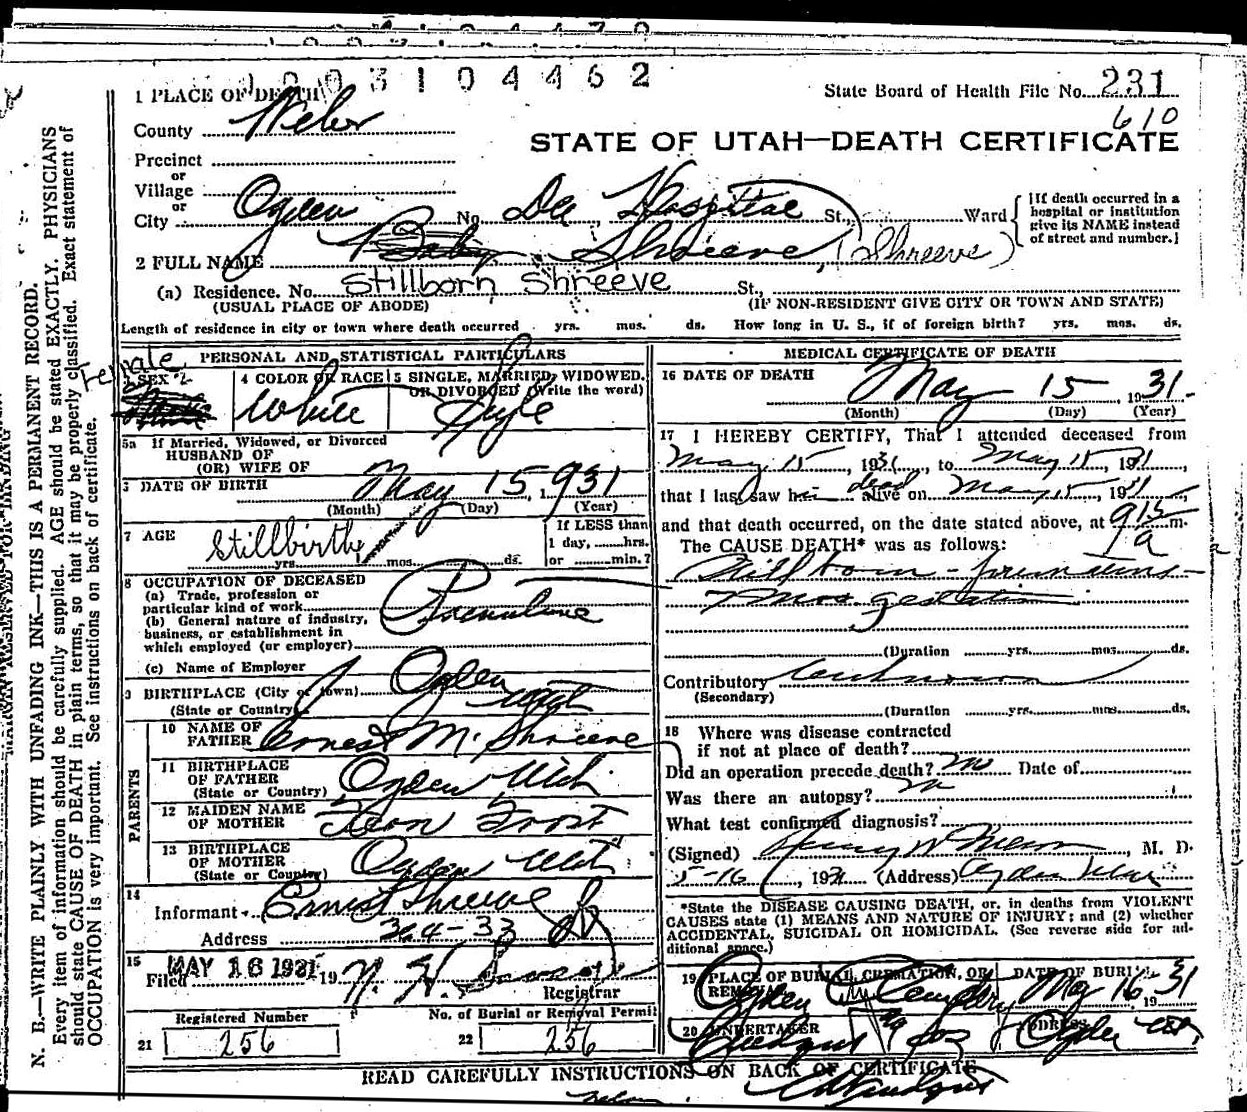 1003104462
1 PLACE OF DEATH
State Board of Health File No. 231
610
County Weber
STATE OF UTAH—DEATH CERTIFICATE
Precinct
or
Village
or
City Ogden No. Dee Hospital St., Ward
{If death occurred in a
hospital or institution
give its NAME instead
of street and number.}
2 FULL NAME Baby Shreeve, (Shreeve)
Stillborn Shreeve
(a) Residence. No. St.,
(USUAL PLACE OF ABODE) (IF NON-RESIDENT GIVE CITY OR TOWN AND STATE)
Length of residence in city or town where death occurred yrs. mos. ds. How long in U. S., if of foreign birth? yrs. mos. ds.
PERSONAL AND STATISTICAL PARTICULARS
Female
3 SEX
4 COLOR OR RACE
White
5 SINGLE, MARRIED, WIDOWED.
OR DIVORCED (Write the word)
Single
5a If Married, Widowed, or Divorced
HUSBAND OF
(OR) WIFE OF
DATE OF BIRTH May 15 1931
(Month) (Day) (Year)
7 AGE Stillbirth
yrs. mos. ds.
If LESS than
1 day, hrs.
or min.?
8 OCCUPATION OF DECEASED
(a) Trade, profession or
particular kind of work
(b) General nature of industry,
business, or establishment in
which employed (or employer)
Premature
(c) Name of Employer
9 BIRTHPLACE (City or town) Ogden
(State or Country) Utah
PARENTS
10 NAME OF
FATHER Ernest M. Shreeve
11 BIRTHPLACE
OF FATHER
(State or Country) Ogden Utah
12 MAIDEN NAME
OF MOTHER Frost
13 BIRTHPLACE
OF MOTHER
(State or Country) Ogden Utah
14
Informant Ernest Shreeve
Address 364-33
15
Filed MAY 16 1931 19
Registrar
Registered Number
21 256
No. of Burial or Removal Permit
22 256
MEDICAL CERTIFICATE OF DEATH
16 DATE OF DEATH May 15, 1931
(Month) (Day) (Year)
17 I HEREBY CERTIFY, That I attended deceased from
May 15, 1931, to May 15, 1931,
that I last saw her dead alive on May 15, 1931,
and that death occurred, on the date stated above, at 915 a m.
The CAUSE DEATH* was as follows:
Stillborn -
7 mos gestation
(Duration yrs. mos. ds.
Contributory unknown
(Secondary)
(Duration yrs. mos. ds.
18 Where was disease contracted
if not at place of death?
Did an operation precede death? no Date of
Was there an autopsy? no
What test confirmed diagnosis?
(Signed) Henry W Nelson, M. D.
5-16, 1931 (Address) Ogden Utah
*State the DISEASE CAUSING DEATH, or, in deaths from VIOLENT
CAUSES state (1) MEANS AND NATURE OF INJURY; and (2) whether
ACCIDENTAL, SUICIDAL OR HOMICIDAL. (See reverse side for ad-
ditional space.)
19 PLACE OF BURIAL, CREMATION, OR
REMOVAL
Ogden City Cemetery
DATE OF BURIAL
May 16 1931
20 UNDERTAKER
ADDRESS
Ogden Utah
READ CAREFULLY INSTRUCTIONS ON BACK OF CERTIFICATE
Nelson
N. B.—WRITE PLAINLY WITH UNFADING INK—THIS IS A PERMANENT RECORD.
Every item of information should be carefully supplied. AGE should be stated EXACTLY. PHYSICIANS
should state CAUSE OF DEATH in plain terms, so that it may be properly classified. Exact statement of
OCCUPATION is very important. See instructions on back of certificate.